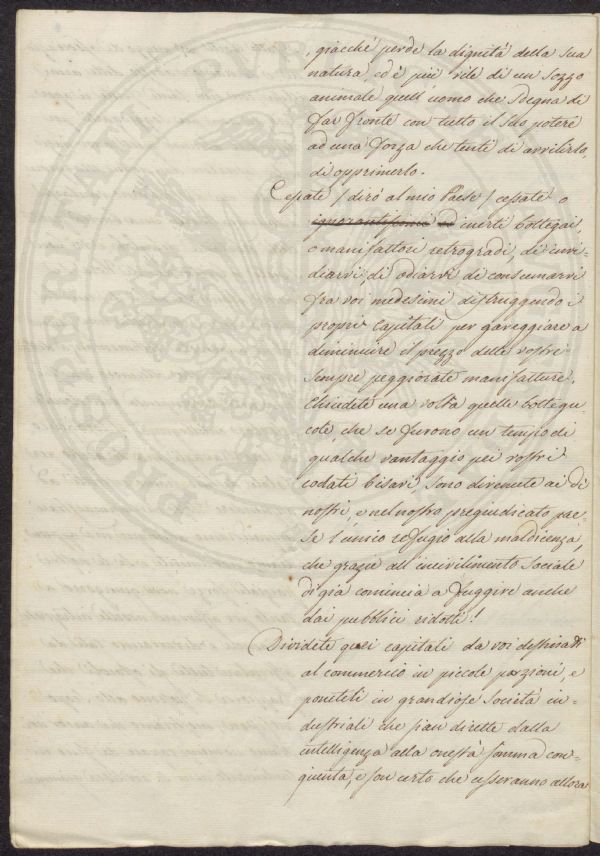 , giacchè perde la dignità della sua
natura, ed è più vile di un sozzo
animale quell'uomo che sdegna di
far fronte con tutto il suo potere
ad una forza che tenti di avvilirlo,
di opprimerlo.
Cessate / dirò al mio Paese / cessate o
ignorantissimi ed inerti bottegai,
o manifattori retrogradi, di invi-
diarvi, di odiarvi di consumarvi
fra voi medesimi distruggendo i
proprj capitali per gareggiare a
diminuire il prezzo delle vostre
sempre peggiorate manifatture.
Chiudete una volta quelle bottegu-
cole, che se furono un tempo di
qualche vantaggio pei vostri
codati bisavi, sono divenute ai dì
nostri, e nel nostro pregiudicato pae-
se l'unico refugio alla maldicenza,
che grazie all'incivilimento sociale
di già comincia a fuggire anche
dai pubblici ridotti!
Dividete quei capitali da voi destinati
al commercio in piccole porzioni, e
poneteli in grandiose società in-
dustriali che sian dirette dalla
intelligenza alla onestà somma con-
giunta, e son certo che cesseranno allora